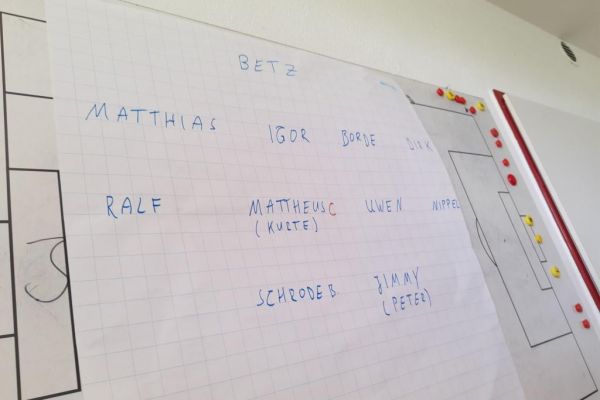 BETZ
MATTHIAS IGOR BORDE DIRK
RALF MATTHEUS C UWEN NIPPEL
(KULTE)
SCHRODEB JIMMY
(PETER)